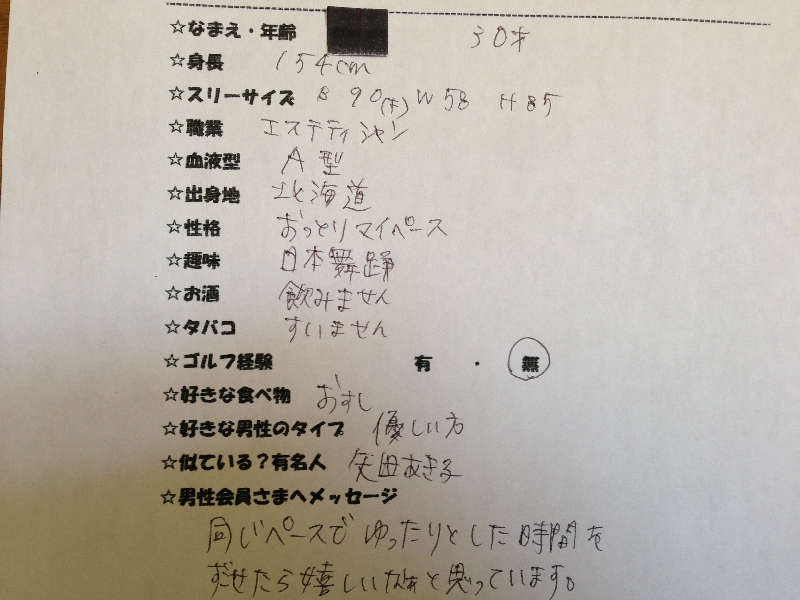 ☆なまえ・年齢 30才
☆身長 154cm
☆スリーサイズ B 90(F) W 58 H 85
☆職業 エステティシャン
☆血液型 A型
☆出身地 北海道
☆性格 おっとりマイペース
☆趣味 日本舞踊
☆お酒 飲みません
☆タバコ すいません
☆ゴルフ経験 有 ・ 無
☆好きな食べ物 おすし
☆好きな男性のタイプ 優しい方
☆似ている?有名人 矢田あき子
☆男性会員さまへメッセージ
同じペースでゆったりとした時間を
すごせたら嬉しいなぁと思っています。